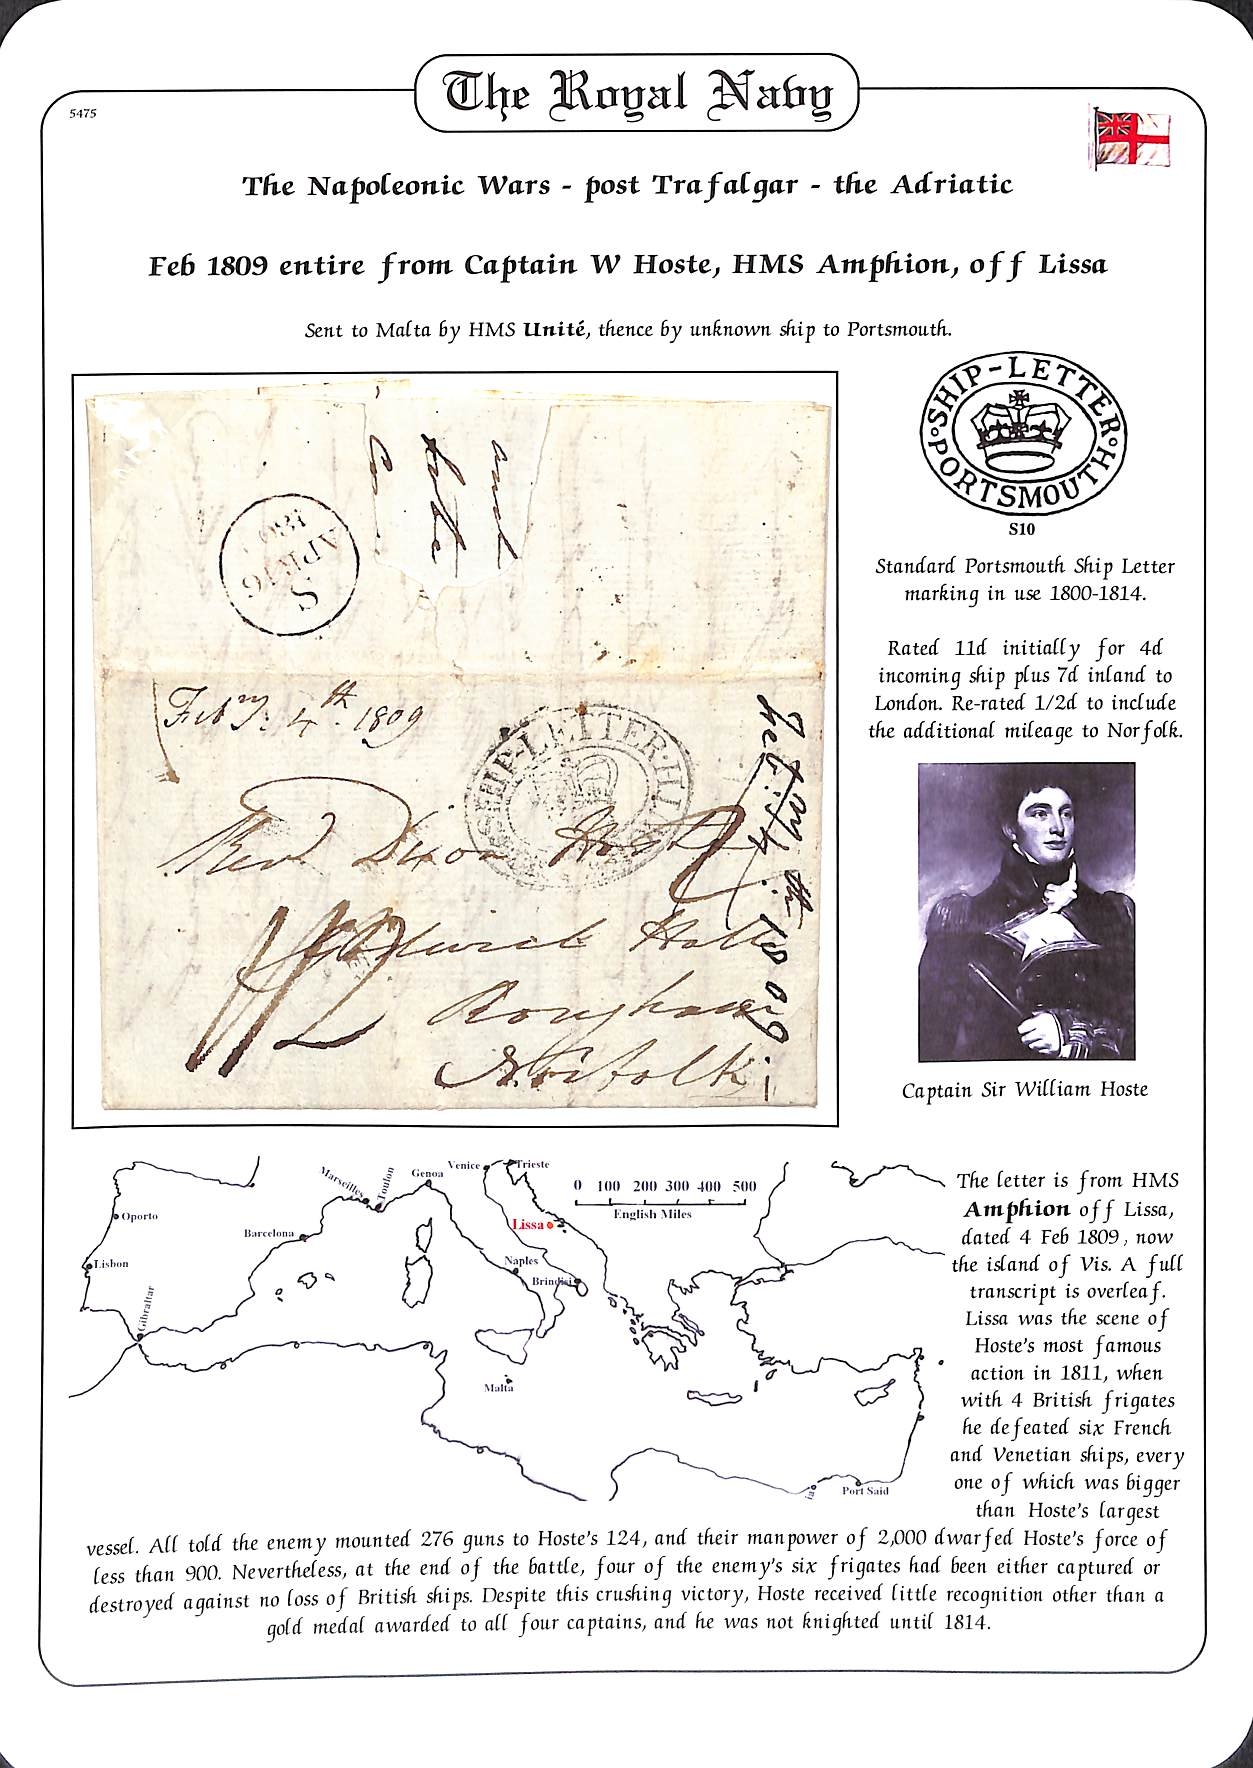 The Royal Navy
5475
The Napoleonic Wars - post Trafalgar - the Adriatic
Feb 1809 entire from Captain W Hoste, HMS Amphion, off Lissa
Sent to Malta by HMS Unité, thence by unknown ship to Portsmouth.
SHIP-LETTER
PORTSMOUTH
S10
Standard Portsmouth Ship Letter
marking in use 1800-1814.
Rated 11d initially for 4d
incoming ship plus 7d inland to
London. Re-rated 1/2d to include
the additional mileage to Norfolk.
Captain Sir William Hoste
and
S
APR 16
Feb ry. 4th. 1809
SHIP-LETTER
Revd Dixon Hoste
Hall
Norfolk
1/2
Feb ry 4th 1809
Marseilles
Toulon
Genoa
Venice
Trieste
0 100 200 300 400 500
English Miles
Oporto
Barcelona
Lissa
Lisbon
Naples
Brindisi
Gibraltar
Malta
Port Said
The letter is from HMS
Amphion off Lissa,
dated 4 Feb 1809, now
the island of Vis. A full
transcript is overleaf.
Lissa was the scene of
Hoste's most famous
action in 1811, when
with 4 British frigates
he defeated six French
and Venetian ships, every
one of which was bigger
than Hoste's largest
vessel. All told the enemy mounted 276 guns to Hoste's 124, and their manpower of 2,000 dwarfed Hoste's force of
less than 900. Nevertheless, at the end of the battle, four of the enemy's six frigates had been either captured or
destroyed against no loss of British ships. Despite this crushing victory, Hoste received little recognition other than a
gold medal awarded to all four captains, and he was not knighted until 1814.